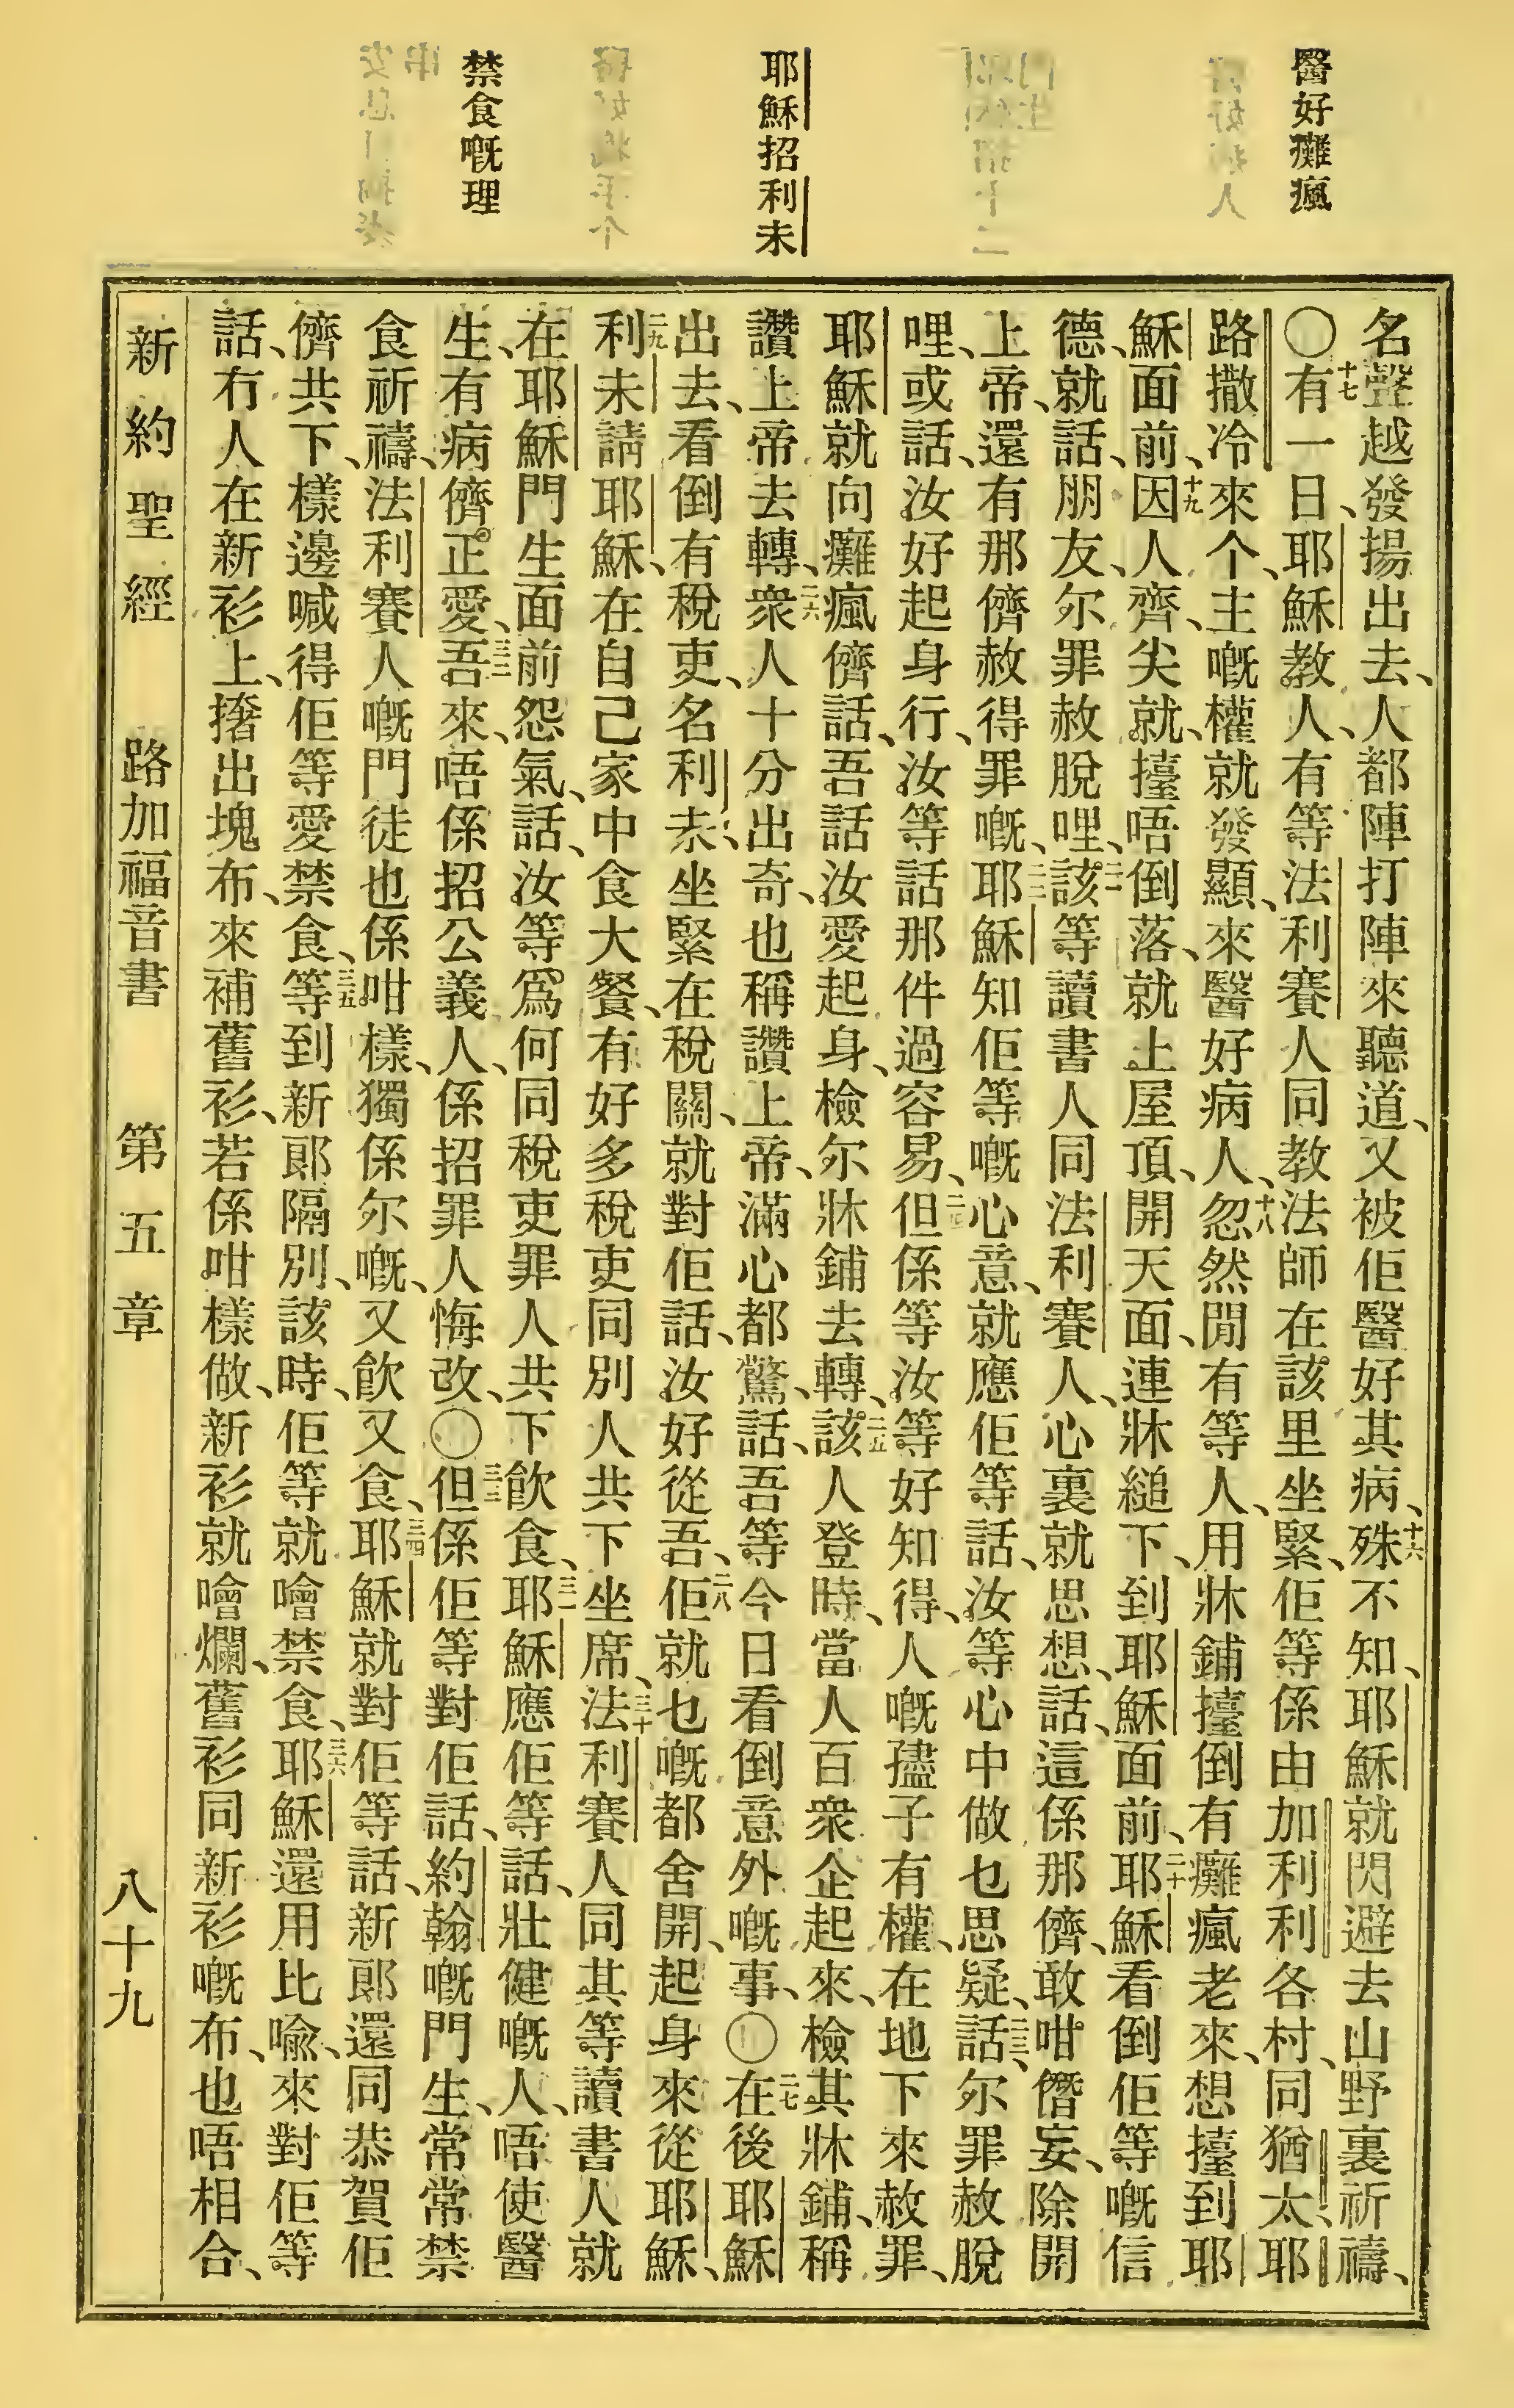 醫好癱瘋
耶穌招利未
禁食嘅理
名聲越發揚出去、人都陣打陣來聽道、又被佢醫好其病、十六殊不知、耶穌就閃避去山野裏祈禱、
〇十七有一日、耶穌教人、有等法利賽人同教法師在該里坐緊、佢等係由加利利各村、同猶太、耶
路撒冷來个、主嘅權就發顯、來醫好病人、十八忽然閒有等人、用牀鋪擡倒有癱瘋老來、想擡到耶
穌面前、十九因人齊、尖就、擡唔倒落、就上屋頂、開天面、連牀縋下、到耶穌面前、二十耶穌看倒佢等嘅信
德、就話、朋友、尔罪赦脫哩、二一該等讀書人同法利賽人、心裏就思想、話、這係那儕、敢咁僭妄、除開
上帝、還有那儕赦得罪嘅、二二耶穌知佢等嘅心意、就應佢等話、汝等心中做乜思疑、二三話、尔罪赦脫
哩、或話、汝好起身行、汝等話那件過容易、二四但係等汝等好知得、人嘅孻子有權、在地下來赦罪、
耶穌就向癱瘋儕話、吾話汝愛起身、檢尔牀鋪去轉、二五該人登時、當人百衆企起來、檢其牀鋪、稱
讚上帝去轉、二六衆人十分出奇、也稱讚上帝、滿心都驚、話、吾等今日看倒意外嘅事、〇二七在後耶穌
出去、看倒有稅吏、名利未、坐緊在稅關、就對佢話、汝好從吾、二八佢就乜嘅都舍開、起身來從耶穌、
二九利未請耶穌、在自己家中食大餐、有好多稅吏同別人共下坐席、三十法利賽人同其等讀書人就
在耶穌門生面前怨氣、話、汝等爲何同稅吏罪人共下飲食、三一耶穌應佢等話、壯健嘅人、唔使醫
生、有病儕正愛、三二吾來、唔係招公義人、係招罪人悔改、〇三三但係佢等對佢話、約翰嘅門生、常常禁
食祈禱、法利賽人嘅門徒也係咁樣、獨係尔嘅、又飲又食、三四耶穌就對佢等話、新郎還同恭賀佢
儕共下、樣邊喊得佢等愛禁食、三五等到新郎隔別、該時、佢等就噲禁食、三六耶穌還用比喻、來對佢等
話、冇人在新衫上、撦出塊布、來補舊衫、若係咁樣做、新衫就噲爛、舊衫同新衫嘅布、也唔相合、
新約聖經 路加福音書 第五章 八十九